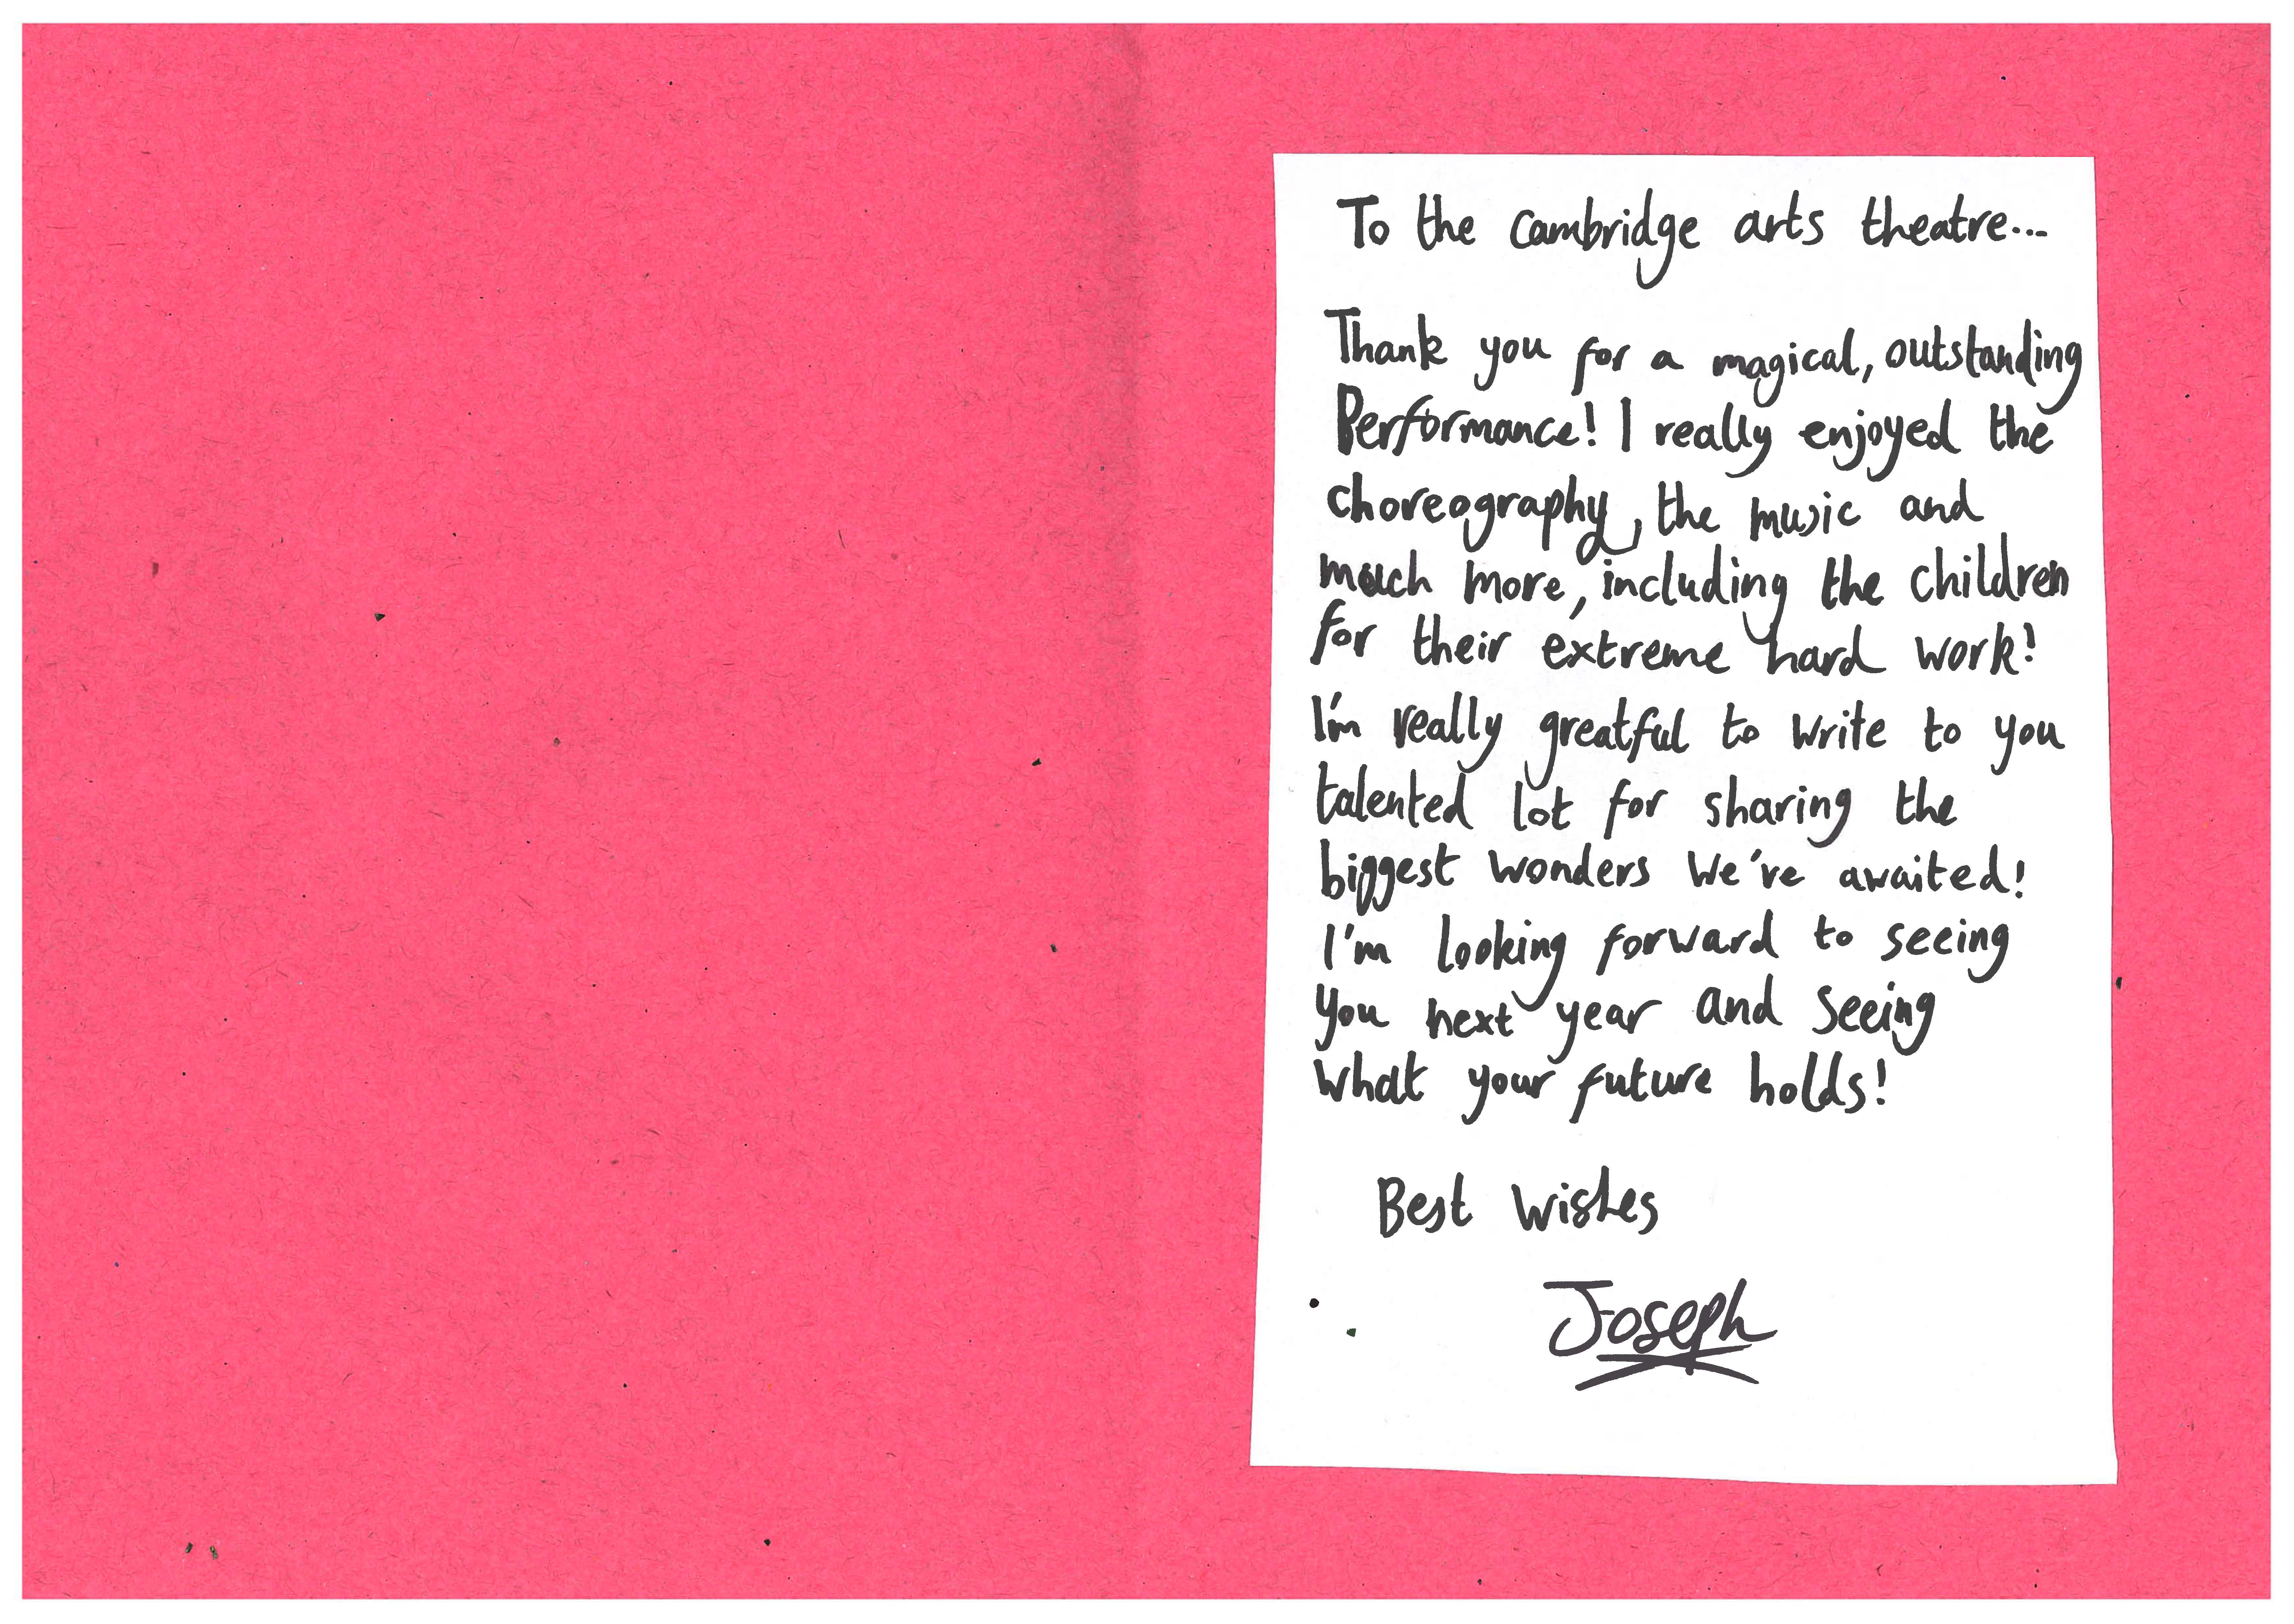 To the Cambridge arts theatre...
Thank you for a magical, outstanding
Performance! I really enjoyed the
choreography, the music and
much more, including the children
for their extreme hard work!
I'm really greatful to write to you
talented lot for sharing the
biggest wonders we've awaited!
I'm looking forward to seeing
you next year and seeing
what your future holds!
Best Wishes
Joseph